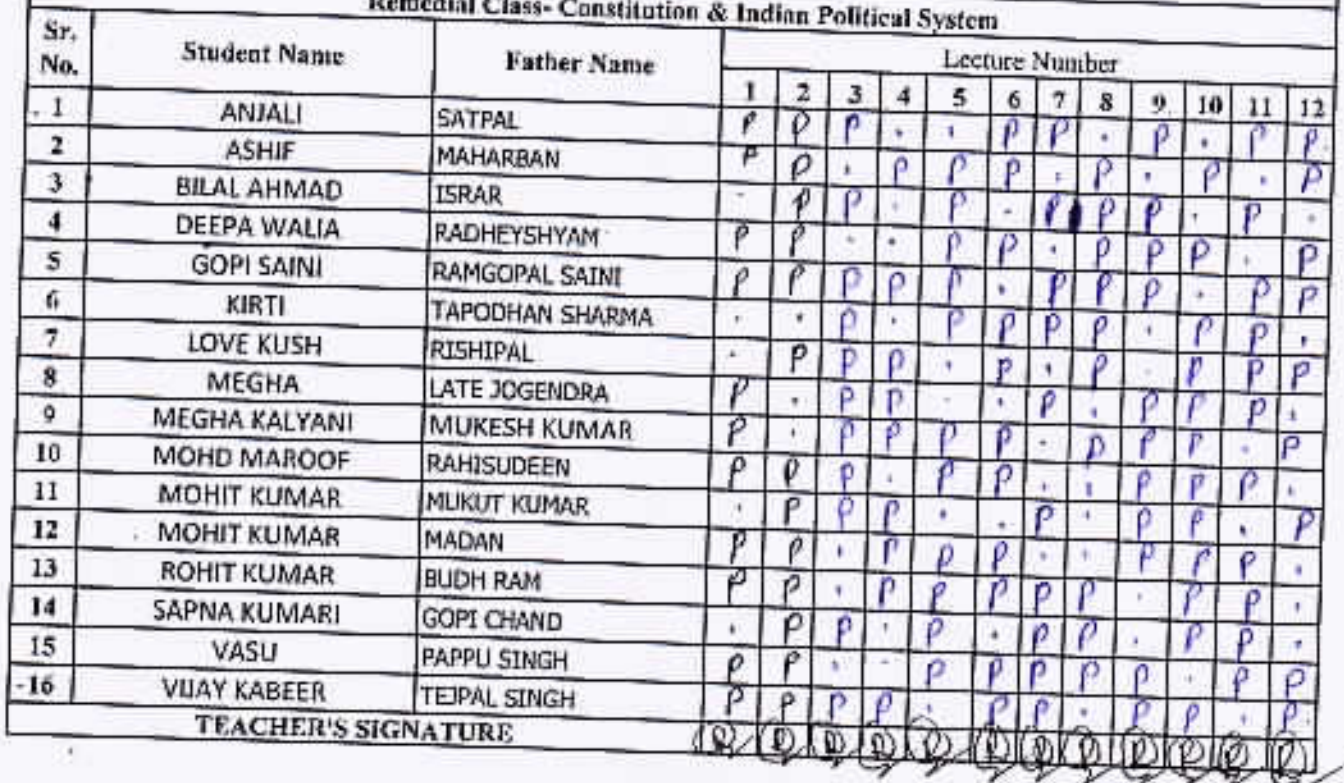 Remedial Class- Constitution & Indian Political System
Sr. No. Student Name Father Name Lecture Number
1 2 3 4 5 6 7 8 9 10 11 12
1 ANJALI SATPAL P P P . . P P . P . P P
2 ASHIF MAHARBAN P P . P P P . P . P . P
3 BILAL AHMAD ISRAR . P P . P . P P P . P .
4 DEEPA WALIA RADHEYSHYAM P P . . P P . P P P . P
5 GOPI SAINI RAMGOPAL SAINI P P P P P . P P P . P P
6 KIRTI TAPODHAN SHARMA . . P . P P P P . P P .
7 LOVE KUSH RISHIPAL . P P P . P . P . P P P
8 MEGHA LATE JOGENDRA P . P P . . P . P P P .
9 MEGHA KALYANI MUKESH KUMAR P . P P P P . P P P . P
10 MOHD MAROOF RAHISUDEEN P P P . P P . . P P P .
11 MOHIT KUMAR MUKUT KUMAR . P P P . . P . P P . P
12 MOHIT KUMAR MADAN P P . P P P . . P P P .
13 ROHIT KUMAR BUDH RAM P P . P P P P P . P P .
14 SAPNA KUMARI GOPI CHAND . P P . P . P P . P P .
15 VASU PAPPU SINGH P P . . P P P P P . P P
16 VIJAY KABEER TEJPAL SINGH P P P P . P P . P P . P
TEACHER'S SIGNATURE